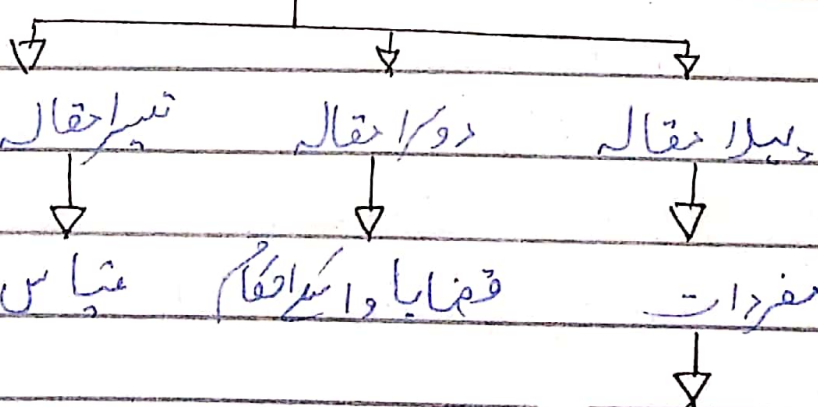 پہلا مقالہ دوسرا مقالہ تیسرا مقالہ
مفردات قضایا و احکام قیاس